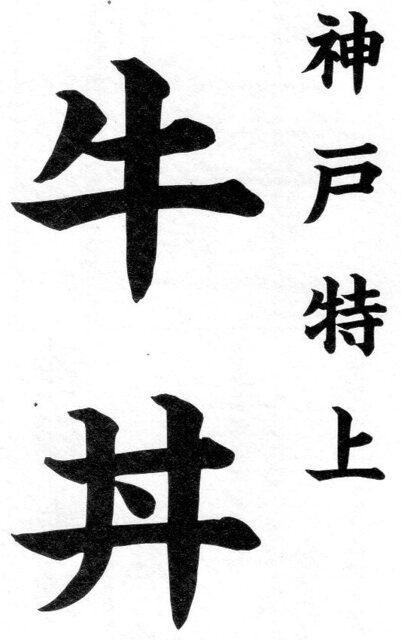 神戸特上
牛丼